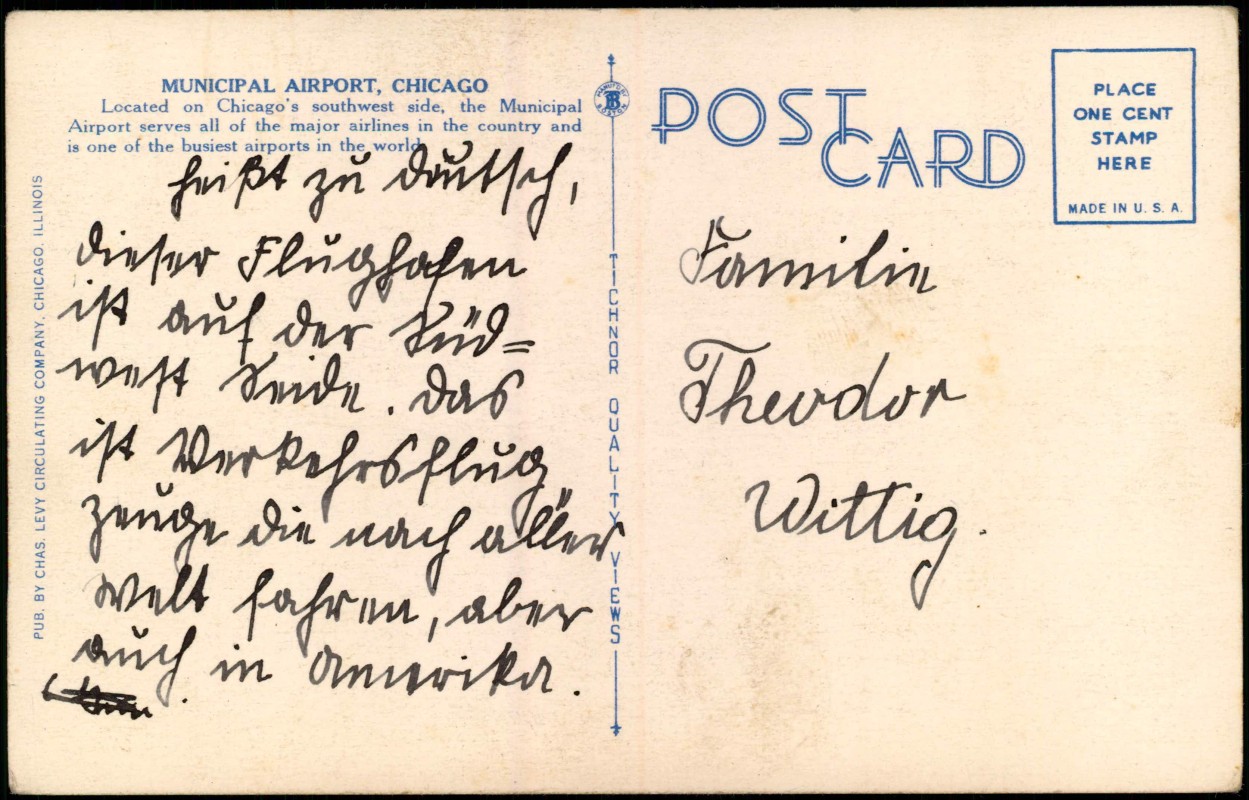 MUNICIPAL AIRPORT, CHICAGO
Located on Chicago's southwest side, the Municipal
Airport serves all of the major airlines in the country and
is one of the busiest airports in the world.
heißt zu deutsch,
dieser Flughafen
ist auf der Süd=
west Seide. das
ist Verkehrsflug„
zeuge die nach aller
welt fahren, aber
auch in Amerika.
PUB. BY CHAS. LEVY CIRCULATING COMPANY, CHICAGO, ILLINOIS
TICHNOR QUALITY VIEWS
POST
CARD
PLACE
ONE CENT
STAMP
HERE
MADE IN U. S. A.
Familie
Theodor
Wittig.